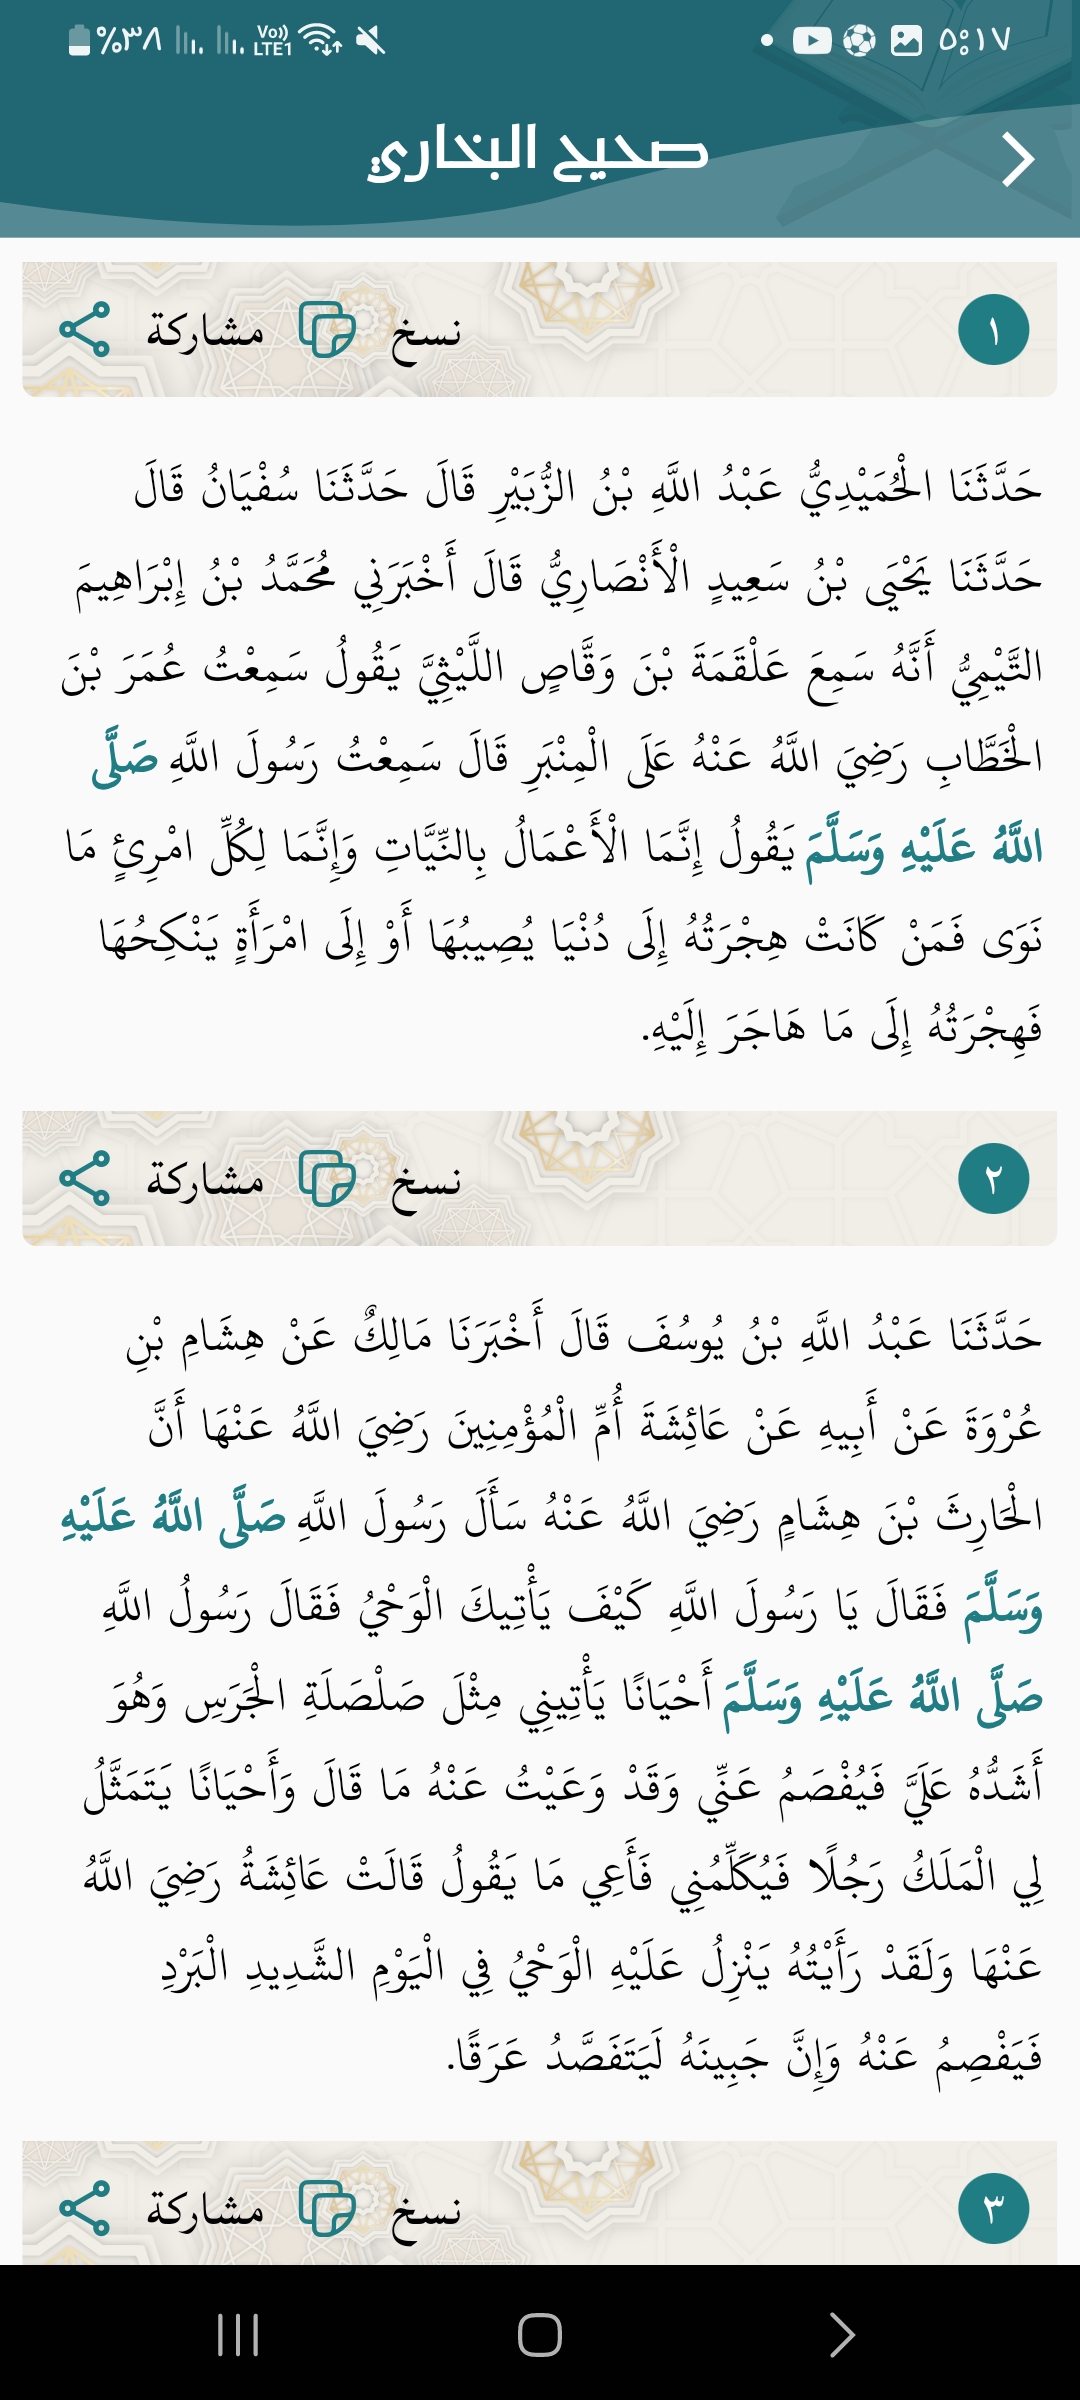 ٥:١٧
Vo))
LTE1
%٣٨
صحيح البخاري
١ نسخ مشاركة
حَدَّثَنَا الْحُمَيْدِيُّ عَبْدُ اللَّهِ بْنُ الزُّبَيْرِ قَالَ حَدَّثَنَا سُفْيَانُ قَالَ
حَدَّثَنَا يَحْيَى بْنُ سَعِيدٍ الْأَنْصَارِيُّ قَالَ أَخْبَرَنِي مُحَمَّدُ بْنُ إِبْرَاهِيمَ
التَّيْمِيُّ أَنَّهُ سَمِعَ عَلْقَمَةَ بْنَ وَقَّاصٍ اللَّيْثِيَّ يَقُولُ سَمِعْتُ عُمَرَ بْنَ
الْخَطَّابِ رَضِيَ اللَّهُ عَنْهُ عَلَى الْمِنْبَرِ قَالَ سَمِعْتُ رَسُولَ اللَّهِ صَلَّى
اللَّهُ عَلَيْهِ وَسَلَّمَ يَقُولُ إِنَّمَا الْأَعْمَالُ بِالنِّيَّاتِ وَإِنَّمَا لِكُلِّ امْرِئٍ مَا
نَوَى فَمَنْ كَانَتْ هِجْرَتُهُ إِلَى دُنْيَا يُصِيبُهَا أَوْ إِلَى امْرَأَةٍ يَنْكِحُهَا
فَهِجْرَتُهُ إِلَى مَا هَاجَرَ إِلَيْهِ.
٢ نسخ مشاركة
حَدَّثَنَا عَبْدُ اللَّهِ بْنُ يُوسُفَ قَالَ أَخْبَرَنَا مَالِكٌ عَنْ هِشَامِ بْنِ
عُرْوَةَ عَنْ أَبِيهِ عَنْ عَائِشَةَ أُمِّ الْمُؤْمِنِينَ رَضِيَ اللَّهُ عَنْهَا أَنَّ
الْحَارِثَ بْنَ هِشَامٍ رَضِيَ اللَّهُ عَنْهُ سَأَلَ رَسُولَ اللَّهِ صَلَّى اللَّهُ عَلَيْهِ
وَسَلَّمَ فَقَالَ يَا رَسُولَ اللَّهِ كَيْفَ يَأْتِيكَ الْوَحْيُ فَقَالَ رَسُولُ اللَّهِ
صَلَّى اللَّهُ عَلَيْهِ وَسَلَّمَ أَحْيَانًا يَأْتِينِي مِثْلَ صَلْصَلَةِ الْجَرَسِ وَهُوَ
أَشَدُّهُ عَلَيَّ فَيُفْصَمُ عَنِّي وَقَدْ وَعَيْتُ عَنْهُ مَا قَالَ وَأَحْيَانًا يَتَمَثَّلُ
لِي الْمَلَكُ رَجُلًا فَيُكَلِّمُنِي فَأَعِي مَا يَقُولُ قَالَتْ عَائِشَةُ رَضِيَ اللَّهُ
عَنْهَا وَلَقَدْ رَأَيْتُهُ يَنْزِلُ عَلَيْهِ الْوَحْيُ فِي الْيَوْمِ الشَّدِيدِ الْبَرْدِ
فَيَفْصِمُ عَنْهُ وَإِنَّ جَبِينَهُ لَيَتَفَصَّدُ عَرَقًا.
٣ نسخ مشاركة